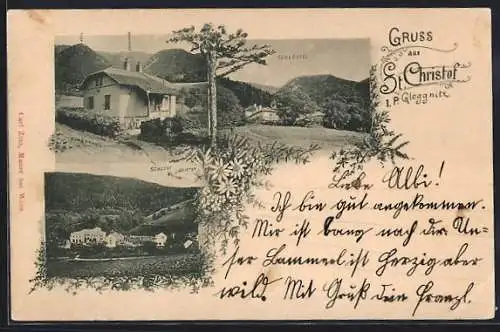 GRUSS
aus
St. Christof
I. P. Gloggnitz
Carl Zinn, Mauer bei Wien
Liebe Albi!
Ich bin gut angekommen.
Mir ist bang nach dir Un-
ser Lammerl ist herzig aber
wild. Mit Gruß dein Franzl.